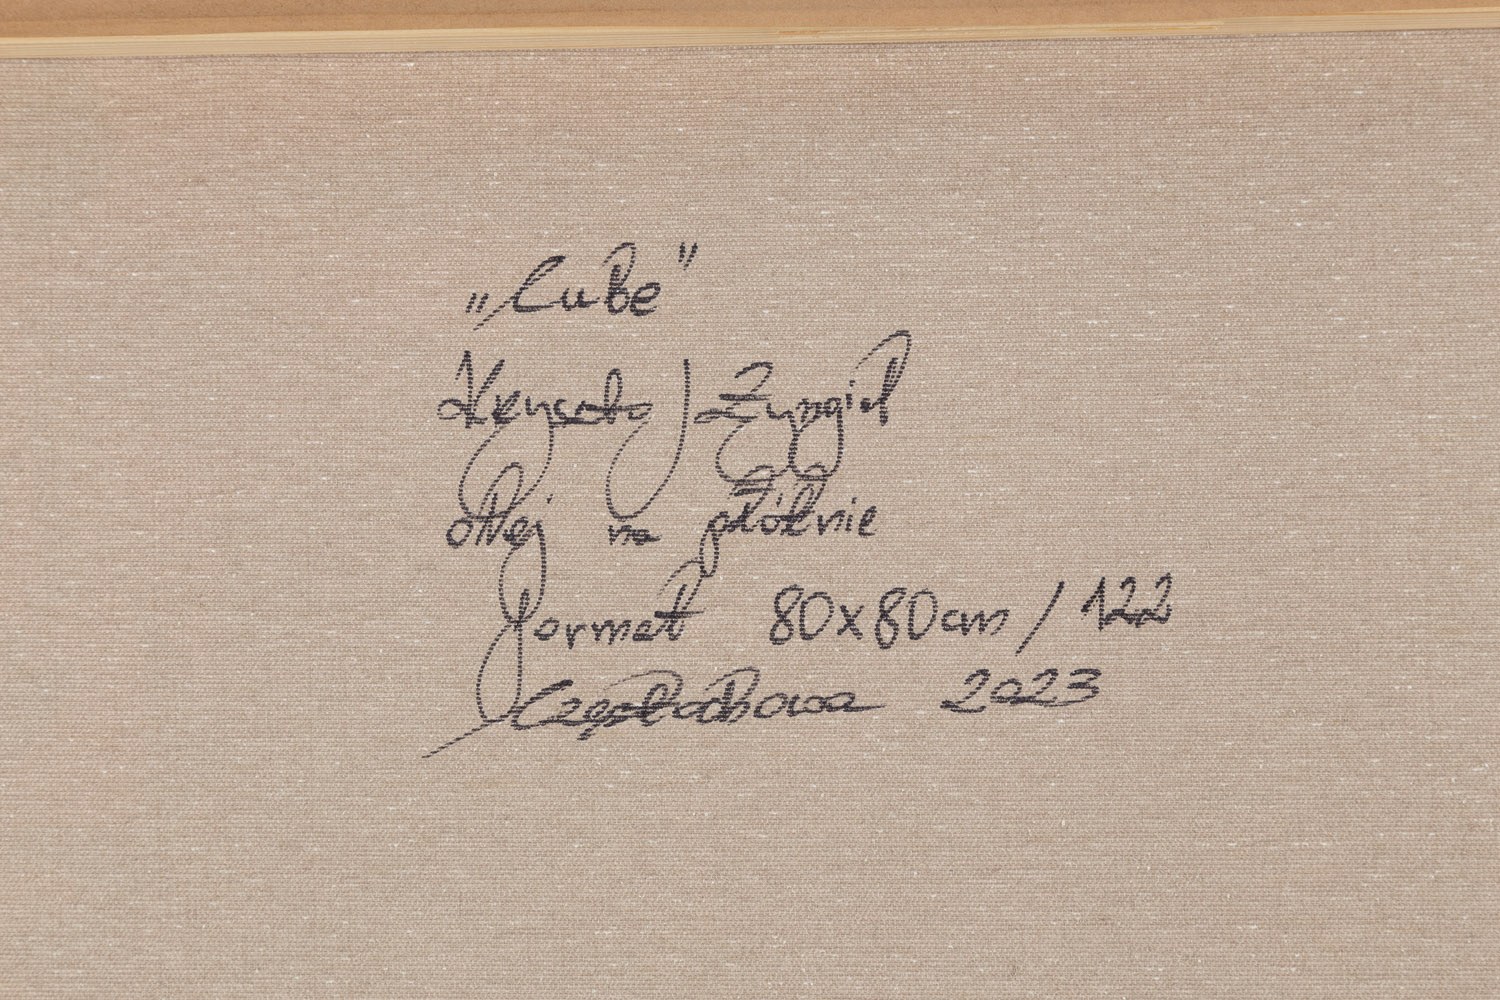 „Cube”
Krzysztof Żyngiel
olej na płótnie
format 80x80cm / 122
Częstochowa 2023